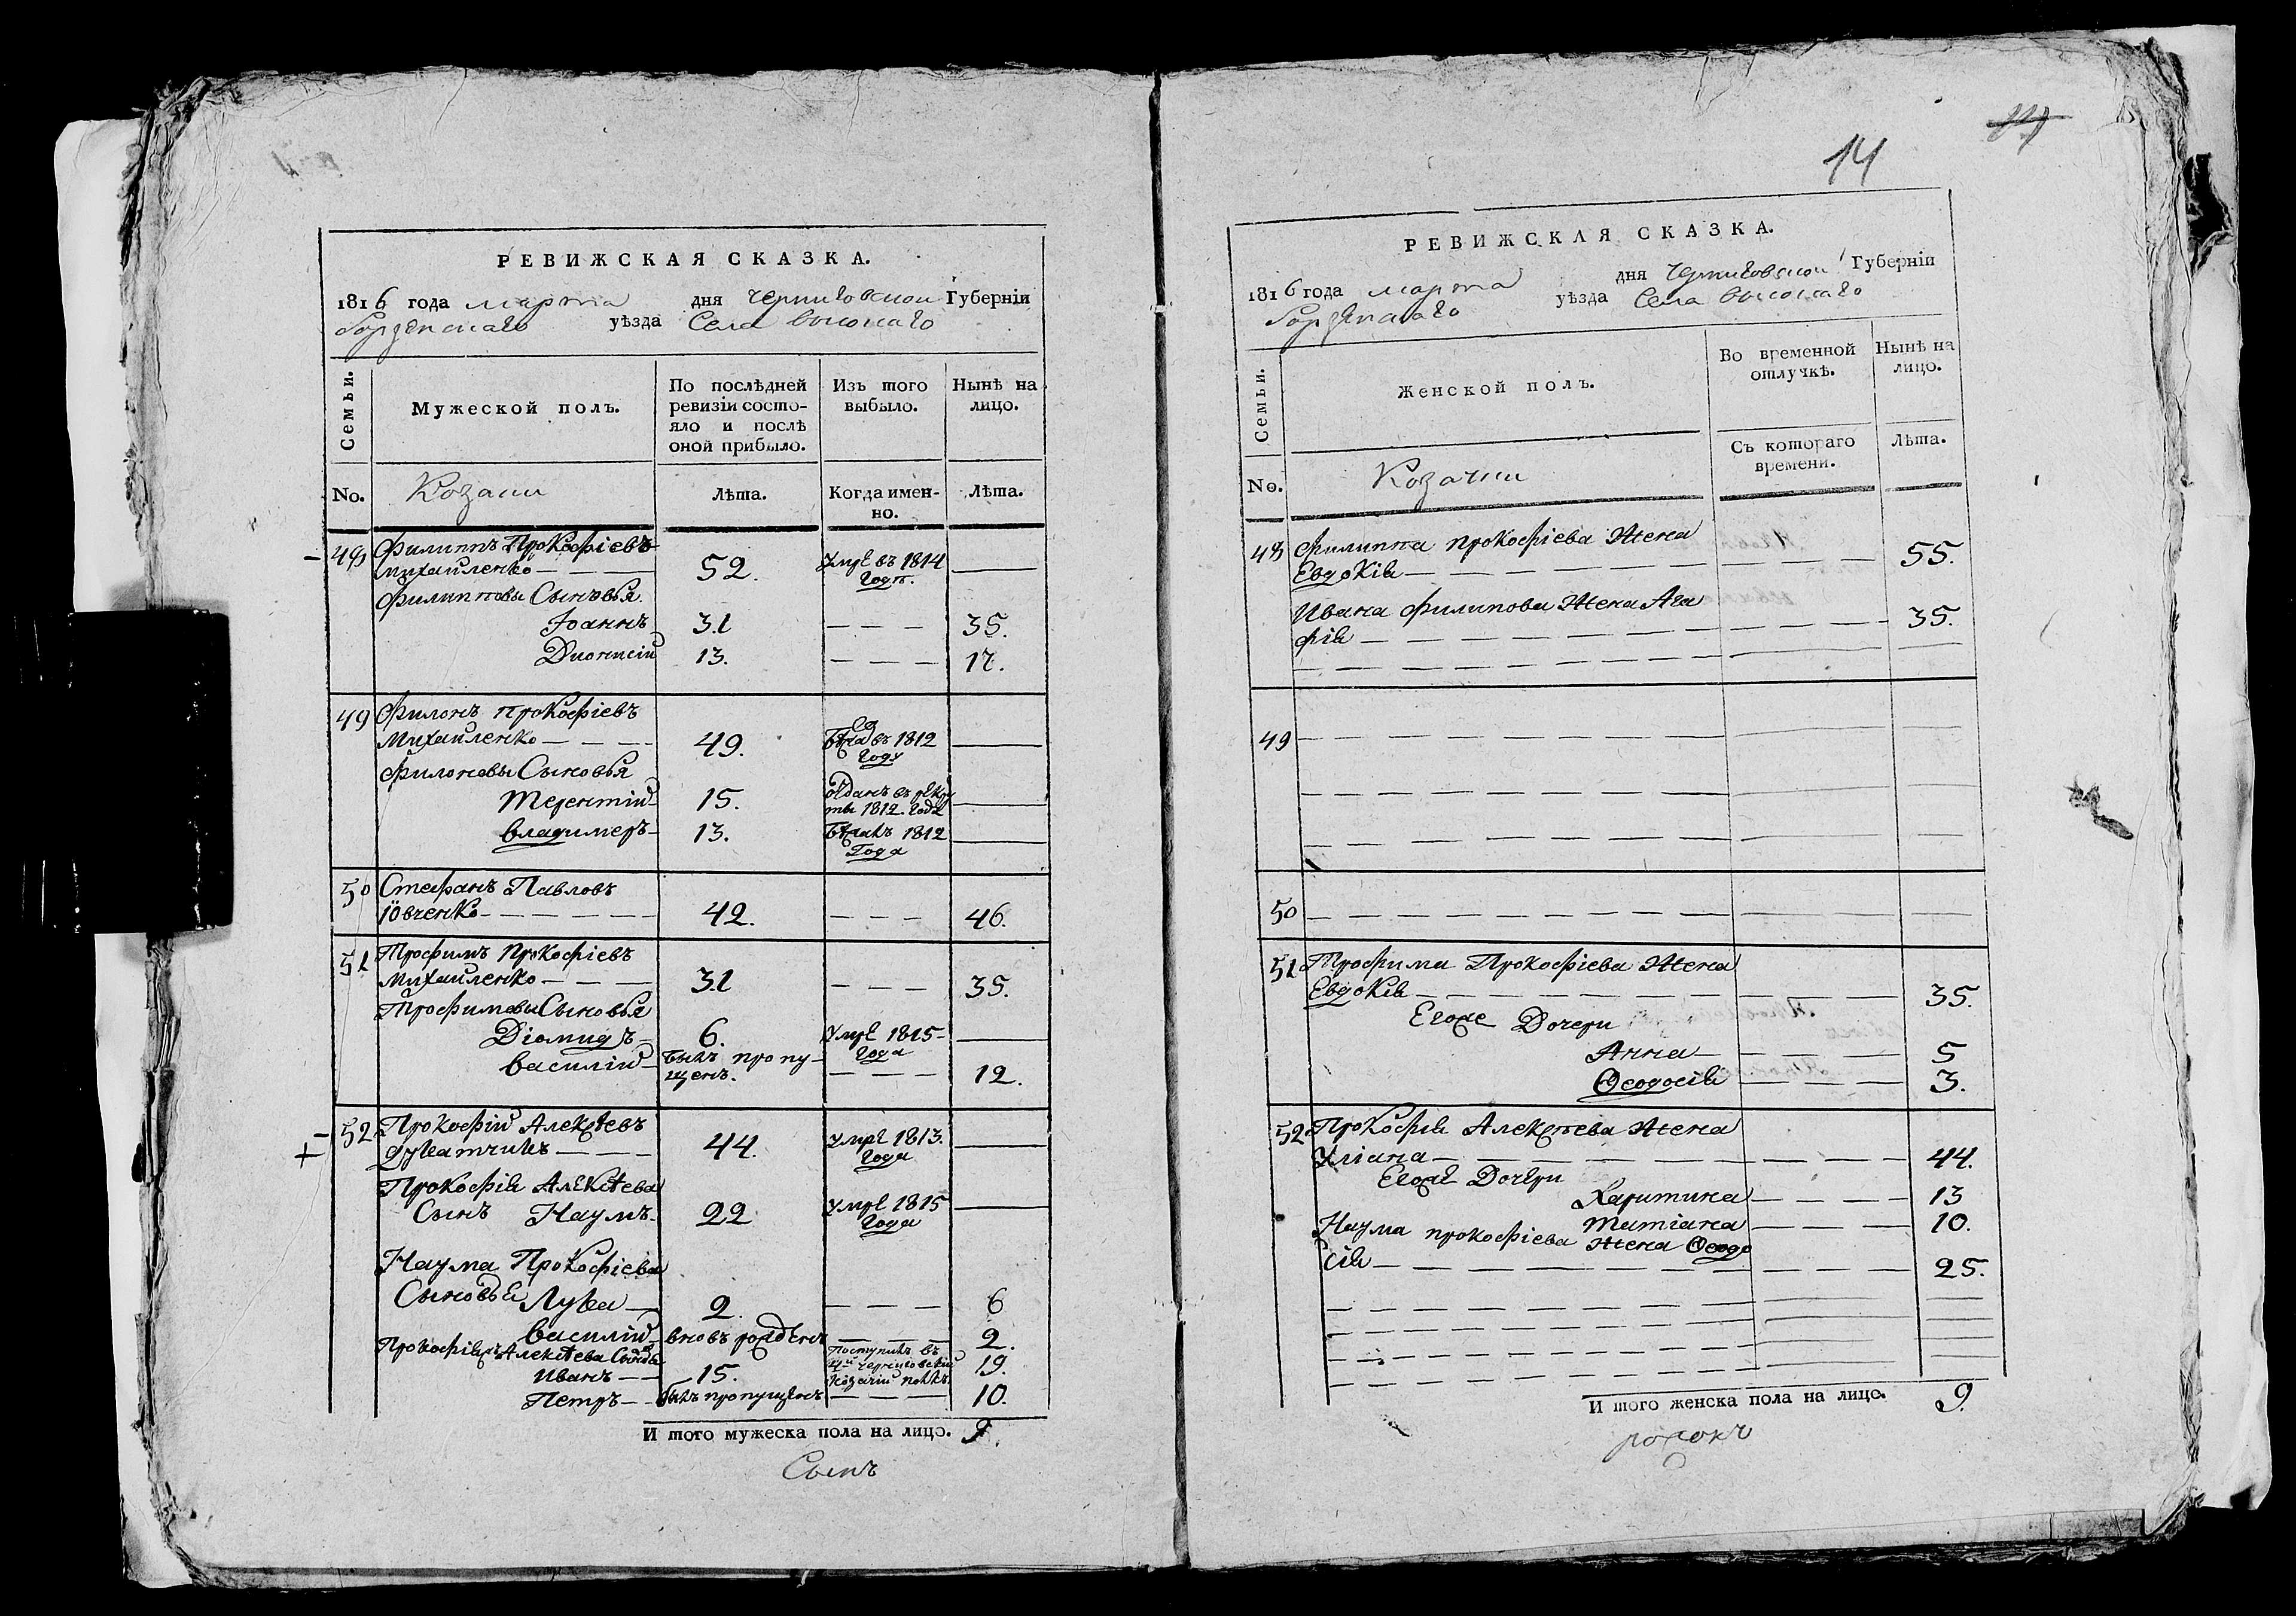 РЕВИЖСКАЯ СКАЗКА.
1816 года марта дня Черниговской Губерніи
уѣзда Села Высокаго
Семьи.
Мужеской полъ.
По послѣдней
ревизіи состо-
яло и послѣ
оной прибыло.
Изъ того
выбыло.
Нынѣ на
лицо.
No. Козаки Лѣта. Когда имен-
но. Лѣта.
48 Филиппъ Прокофіевъ
Михайленко 52. Умре въ 1814
годѣ.
Филипповы Сыновья
Іоаннъ 31 35.
Дионисій 13. 17.
49 Филонъ Прокофіевъ
Михайленко 49. въ 1812
Году
Филоновы Сыновья
Терентій 15. отданъ въ рекру
ты 1812. Года
Владимеръ 13. 1812
Года
50 Стефанъ Павловъ
Іовченко 42. 46.
51 Трофимъ Прокофіевъ
Михайленко 31 35.
Трофимовы Сыновья
Діомидъ 6. Умре 1815
Года
Василій былъ пропу-
щенъ. 12.
52 Прокофій Алексѣевъ
44. умре 1813.
Года
Прокофія Алексѣева
Сынъ Наумъ 22 умре 1815
Года
Наума Прокофіева
Сыновья Лука 2. 6
Василій вновь рожденъ 2.
Прокофія Алексѣева Сыновья
Иванъ 15. Поступилъ въ
Черниговскій
Козачій полкъ. 19.
Петръ былъ пропущенъ 10.
И того мужеска пола на лицо. 9.
14
РЕВИЖСКАЯ СКАЗКА.
1816 года марта дня Черниговской Губерніи
уѣзда Села Высокаго
Семьи.
Женской полъ.
Во временной
отлучкѣ.
Нынѣ на
лицо.
Съ котораго
времени.
Лѣта.
No. Козачки
48 Филиппа Прокофіева Жена
Евдокія 55.
Ивана Филипова Жена Ага
фія 35.
49
50
51 Трофима Прокофіева Жена
Евдокія 35.
Егоже Дочери
Анна 5
Ѳеодосія 3.
52 Прокофія Алексѣева Жена
Уліана 44.
Егоже Дочери
Харитина 13
Татіана 10.
Наума Прокофіева Жена Ѳеодо
сія 25.
И того женска пола на лицо. 9.